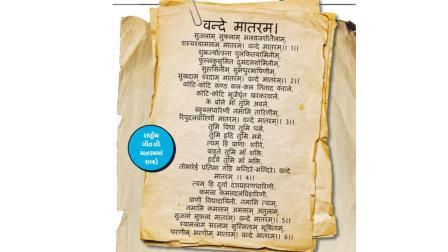 वन्दे मातरम।
सुजलाम् सुफलाम् मलयजशीतलाम्,
शस्यश्यामलाम् मातरम्। वन्दे मातरम्।। 1।।
शुभ्रज्योत्स्ना पुलकितयामिनीम्,
फुल्लकुसुमित द्रुमदलशोभिनीम्,
सुहासिनीम् सुमधुरभाषिणीम्,
सुखदाम् वरदाम् मातरम्। वन्दे मातरम्।। 2।।
कोटि-कोटि कण्ठ कल-कल निनाद कराले,
कोटि-कोटि भुजैर्धृत खरकरवाले,
के बोले माँ तुमि अबले,
बहुबलधारिणीं नमामि तारिणीम्,
रिपुदलवारिणीं मातरम्। वन्दे मातरम्।। 3।।
तुमि विद्या तुमि धर्म,
तुमि हृदि तुमि मर्म,
त्वम् हि प्राणाः शरीरे,
बाहुते तुमि माँ शक्ति,
हृदये तुमि माँ भक्ति,
तोमारेई प्रतिमा गडि मन्दिरे-मन्दिरे। वन्दे
मातरम् ।। 4।।
त्वम् हि दुर्गा दशप्रहरणधारिणी,
कमला कमलदलविहारिणी,
वाणी विद्यादायिनी, नमामि त्वाम्,
नमामि कमलाम् अमलाम् अतुलाम्,
सुजलां सुफलां मातरम्। वन्दे मातरम्।। 5।।
श्यामलाम् सरलाम् सुस्मिताम् भूषिताम्,
धरणीम् भरणीम् मातरम्। वन्दे मातरम्।। 6।।
રાષ્ટ્રીય
ગીત વંદે
માતરમનાં
શબ્દો